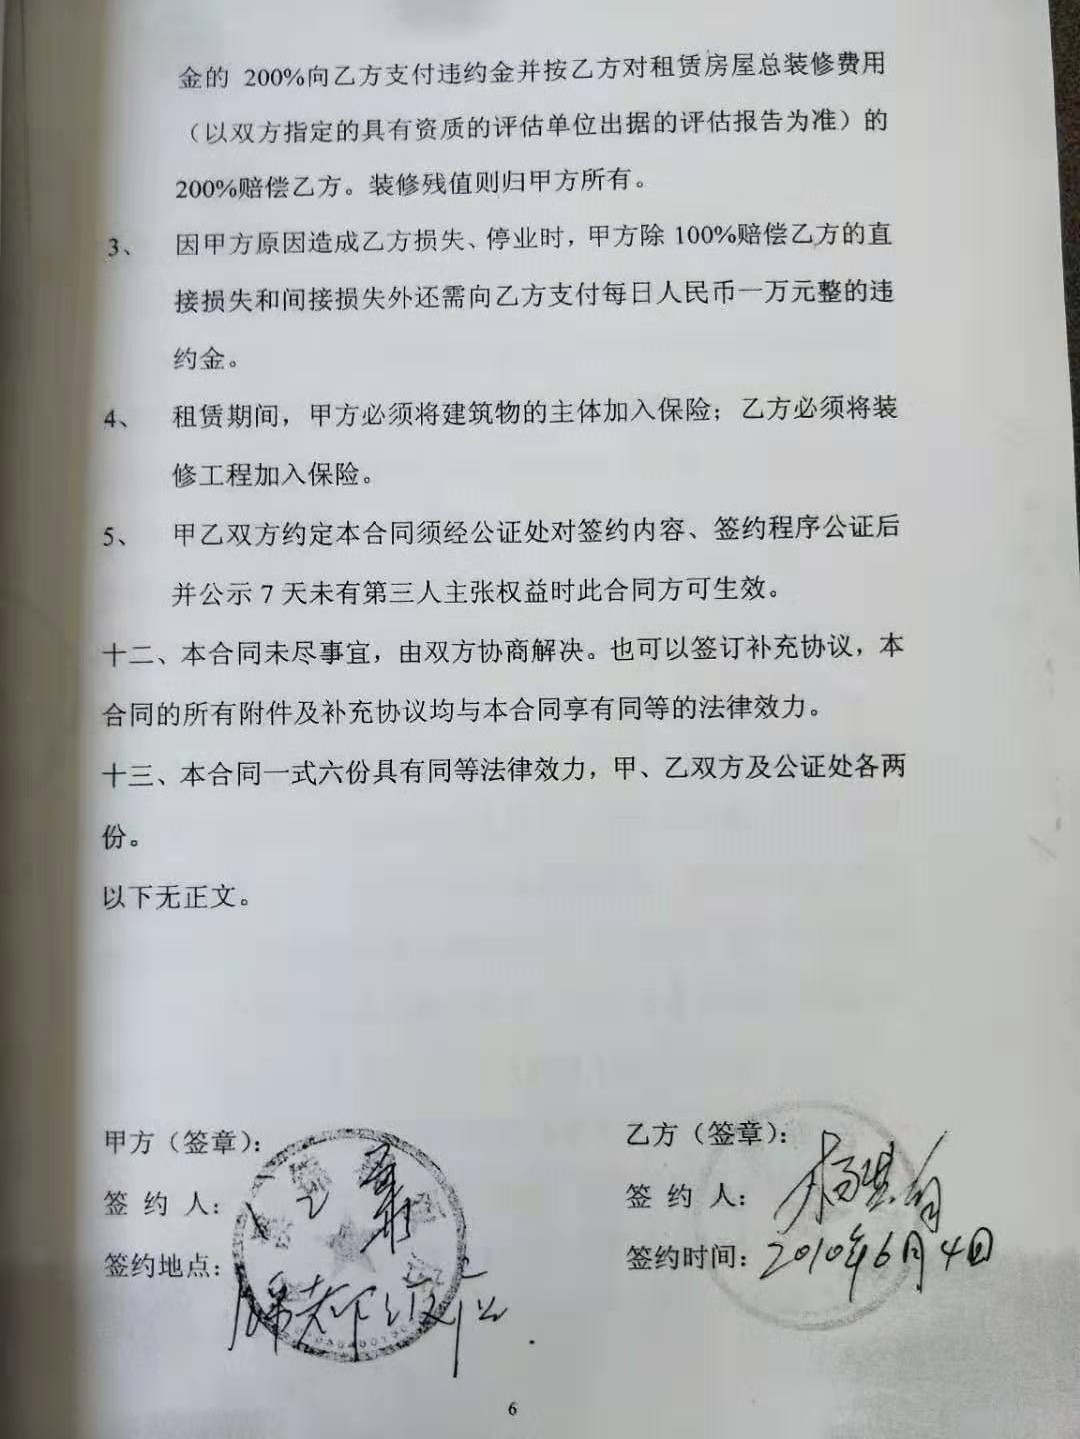 金的 200%向乙方支付违约金并按乙方对租赁房屋总装修费用
（以双方指定的具有资质的评估单位出据的评估报告为准）的
200%赔偿乙方。装修残值则归甲方所有。
3、 因甲方原因造成乙方损失、停业时，甲方除 100%赔偿乙方的直
接损失和间接损失外还需向乙方支付每日人民币一万元整的违
约金。
4、 租赁期间，甲方必须将建筑物的主体加入保险；乙方必须将装
修工程加入保险。
5、 甲乙双方约定本合同须经公证处对签约内容、签约程序公证后
并公示 7 天未有第三人主张权益时此合同方可生效。
十二、本合同未尽事宜，由双方协商解决。也可以签订补充协议，本
合同的所有附件及补充协议均与本合同享有同等的法律效力。
十三、本合同一式六份具有同等法律效力，甲、乙双方及公证处各两
份。
以下无正文。
甲方（签章）：
签 约 人：
签约地点：
乙方（签章）：
签 约 人：
签约时间：2010年6月4日
6